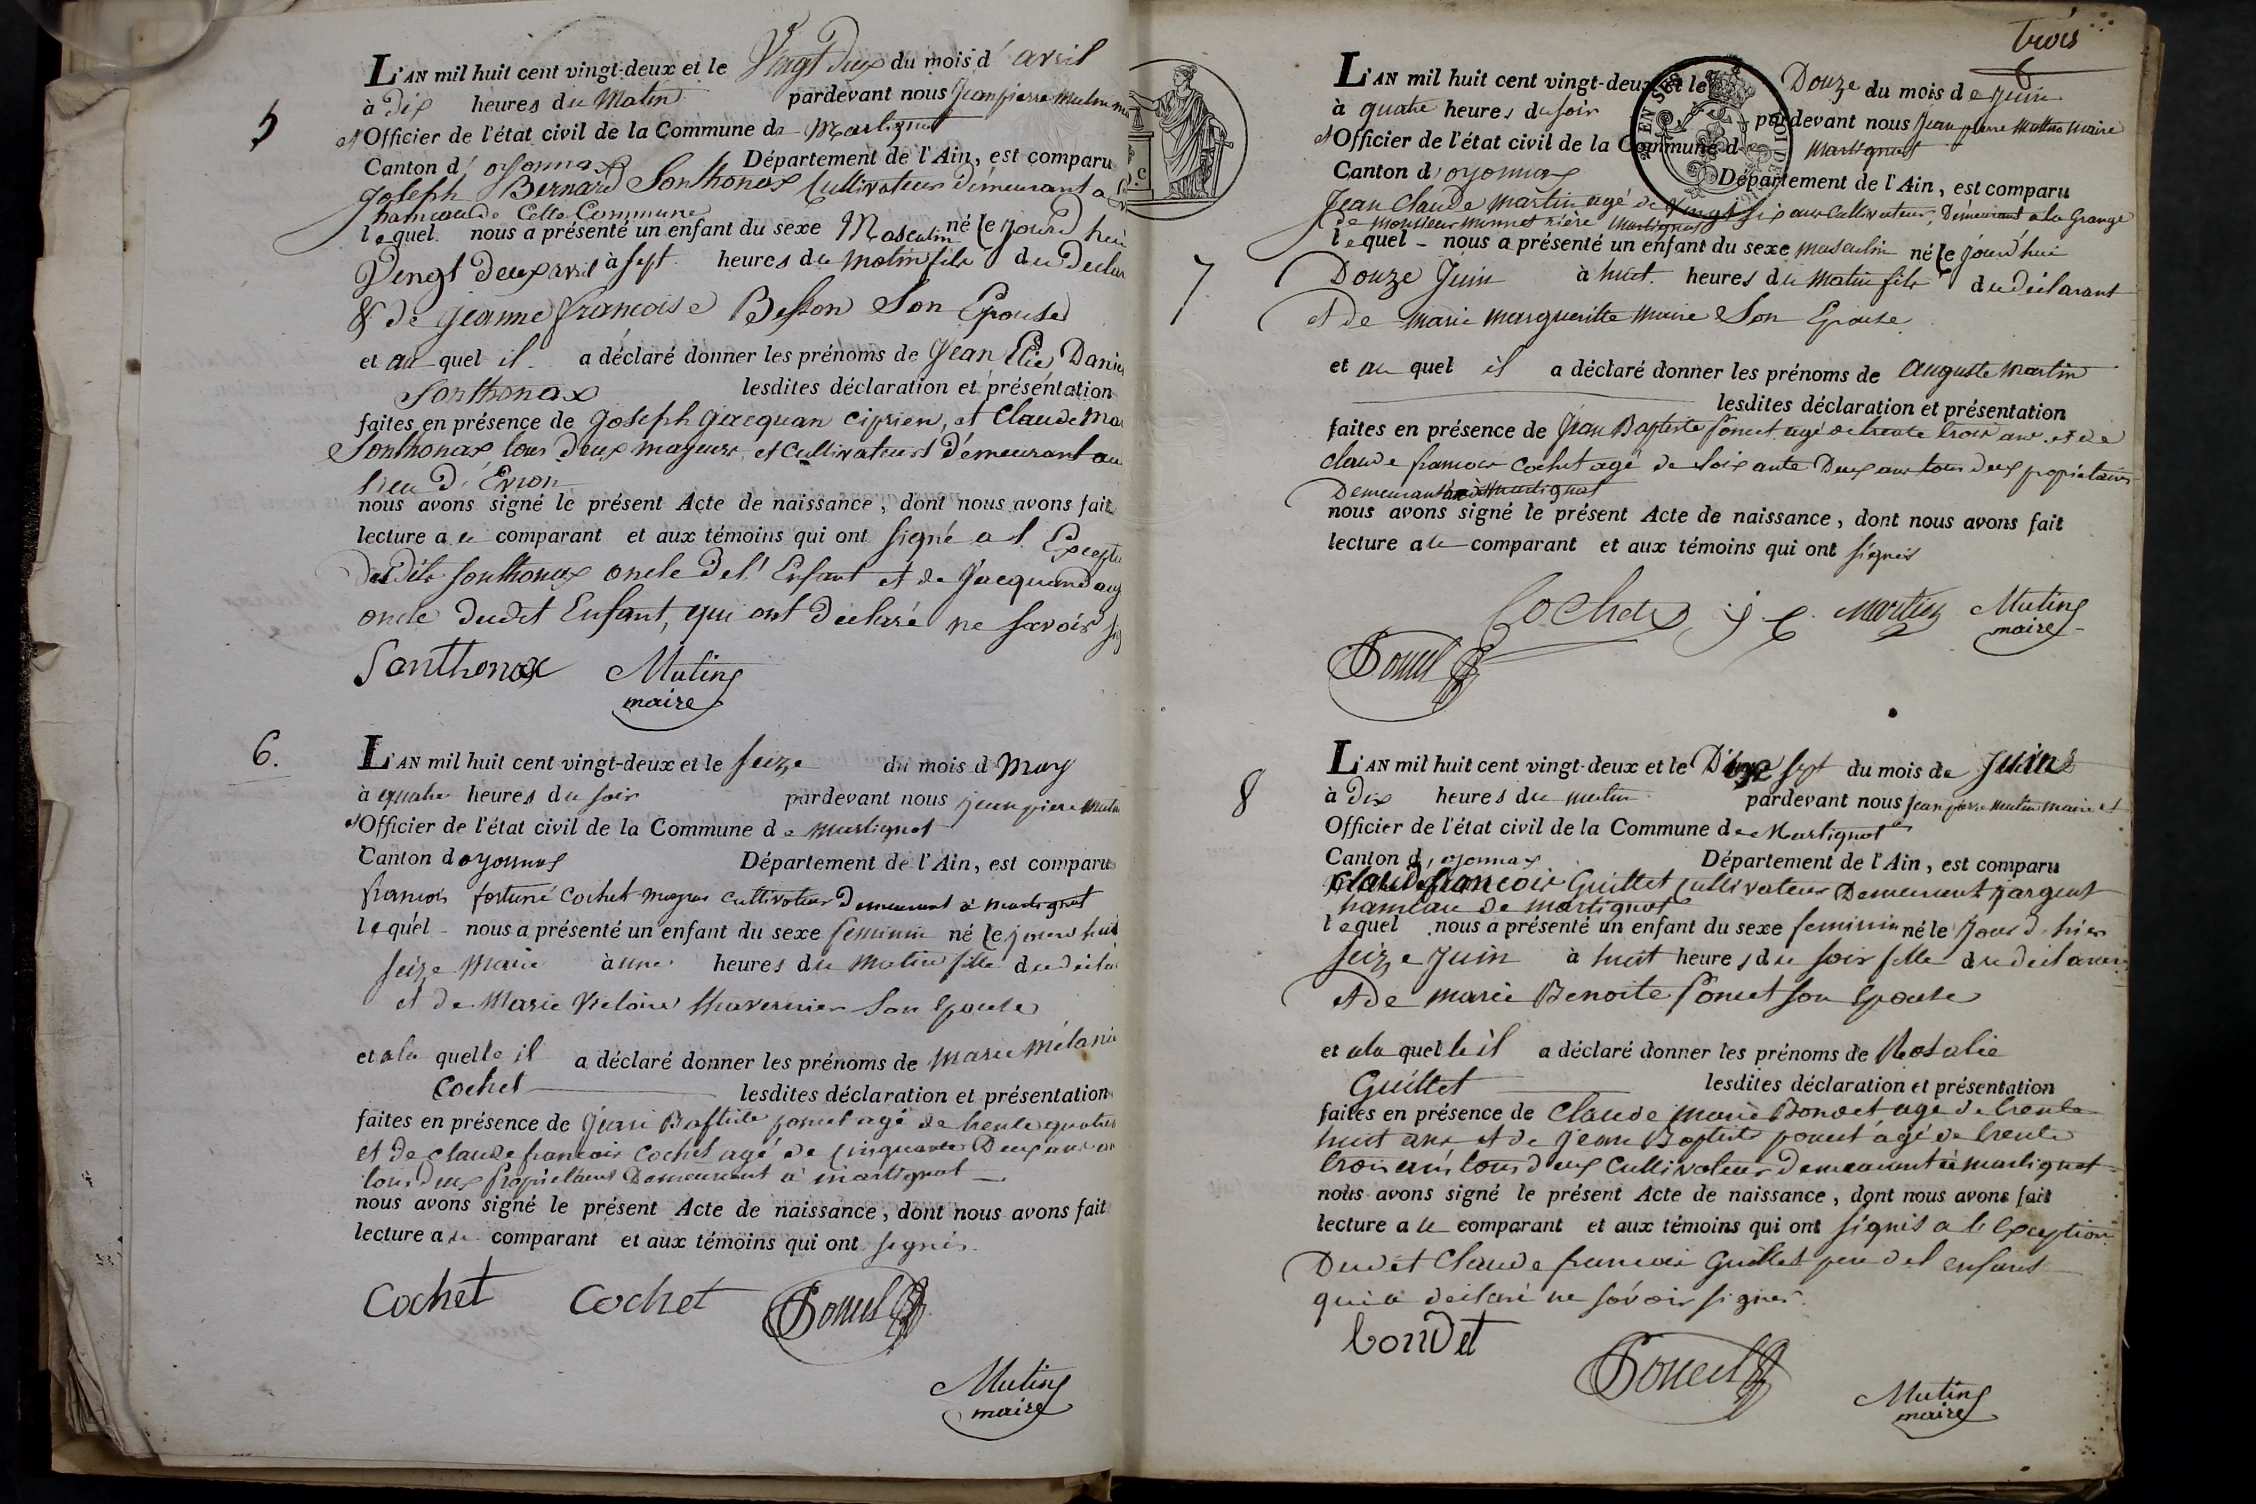 5
L'AN mil huit cent vingt-deux et le Vingt deux du mois d'avril
à Dix heures du Matin pardevant nous Jean pierre Mutin
et Officier de l'état civil de la Commune de Martignat
Canton d'oyonnax Département de l'Ain, est comparu
Joseph Bernard Sonthonax Cultivateur demeurant a
hameau de Cette Commune
lequel nous a présenté un enfant du sexe Masculin né le jourd'hui
Vingt deux avril à sept heures du matin fils du declar
& de jeanne françoise Besson Son Epouse
et au quel il a déclaré donner les prénoms de Jean Elie Danie
Sonthonax lesdites déclaration et présentation
faites en présence de Joseph jacquan ciprien, et Claude Ma
Sonthonax tous deux majeurs et cultivateurs démeurant au
lieu d'Evron
nous avons signé le présent Acte de naissance, dont nous avons fait
lecture au comparant et aux témoins qui ont signé a l'Except
dudit sonthonax oncle de l'Enfant et de jacquand aug
oncle dudit Enfant, qui ont déclaré ne savoir sig
Santhonax Mutin
maire
6.
L'AN mil huit cent vingt-deux et le seize du mois d May
à quatre heures du soir pardevant nous jean pierre Mutin
et Officier de l'état civil de la Commune de Martignat
Canton d oyonnax Département de l'Ain, est comparu
francois fortuné Cochet majeur cultivateur demeurant à martignat
lequel nous a présenté un enfant du sexe feminin né le jourd'hui
seize Maie à une heures du Matin fille du décla
et de Marie Victoire thavernier Son Epouse
et a la quelle il a déclaré donner les prénoms de Marie Mélanie
Cochet lesdites déclaration et présentation
faites en présence de Jean Baptiste poncet agé de trente quatre
et de claude francois Cochet agé de cinquante Deux ans
tous deux propriétaires Demeurant à martignat
nous avons signé le présent Acte de naissance, dont nous avons fait
lecture au comparant et aux témoins qui ont signés
Cochet Cochet Poncet
Mutin
maire
trois
L'AN mil huit cent vingt-deux et le Douze du mois de Juin
à quatre heures du soir pardevant nous Jean pierre Mutin Maire
et Officier de l'état civil de la Commune de Martignat
Canton d'oyonnax Département de l'Ain, est comparu
Jean Claude Martin agé de vingt six ans Cultivateur, Demeurant a la Grange
de monsieur monnet rière Martignat
lequel nous a présenté un enfant du sexe masculin né le jourd'hui
7
Douze Juin à huit heures du Matin fils du déclarant
et de marie margueritte Maire Son Epouse
et au quel il a déclaré donner les prénoms de Auguste Martin
lesdites déclaration et présentation
faites en présence de Jean Baptiste Poncet agé de trente trois ans et de
claude francois Cochet agé de soixante Deux ans tous deux propriétaires
Demeurant à Martignat
nous avons signé le présent Acte de naissance, dont nous avons fait
lecture au comparant et aux témoins qui ont signés
Cochet j C. Martin Mutin
maire
Poncet
8
L'AN mil huit cent vingt-deux et le Dix sept du mois de Juin
à Dix heures du matin pardevant nous jean pierre Mutin maire et
Officier de l'état civil de la Commune de Martignat
Canton d'oyonnax Département de l'Ain, est comparu
Claude francois Guillet Cultivateur Demeurant jargeat
hameau de martignat
lequel nous a présenté un enfant du sexe feminin né le jour d'hier
seize Juin à huit heures du soir fille du déclarant
et de marie Benoite Poncet son Epouse
et a la quelle il a déclaré donner les prénoms de Rosalie
Guillet lesdites déclaration et présentation
faites en présence de Claude Marie Bondet agé de trente
huit ans et de Jean Baptiste poncet agé de trente
trois ans tous deux Cultivateur demeurant à martignat
nous avons signé le présent Acte de naissance, dont nous avons fait
lecture au comparant et aux témoins qui ont signés a le exception
Dudit Claude francois Guillet pere del enfant
qui a déclaré ne sávoir signer.
bondet
Poncet
Mutin
maire